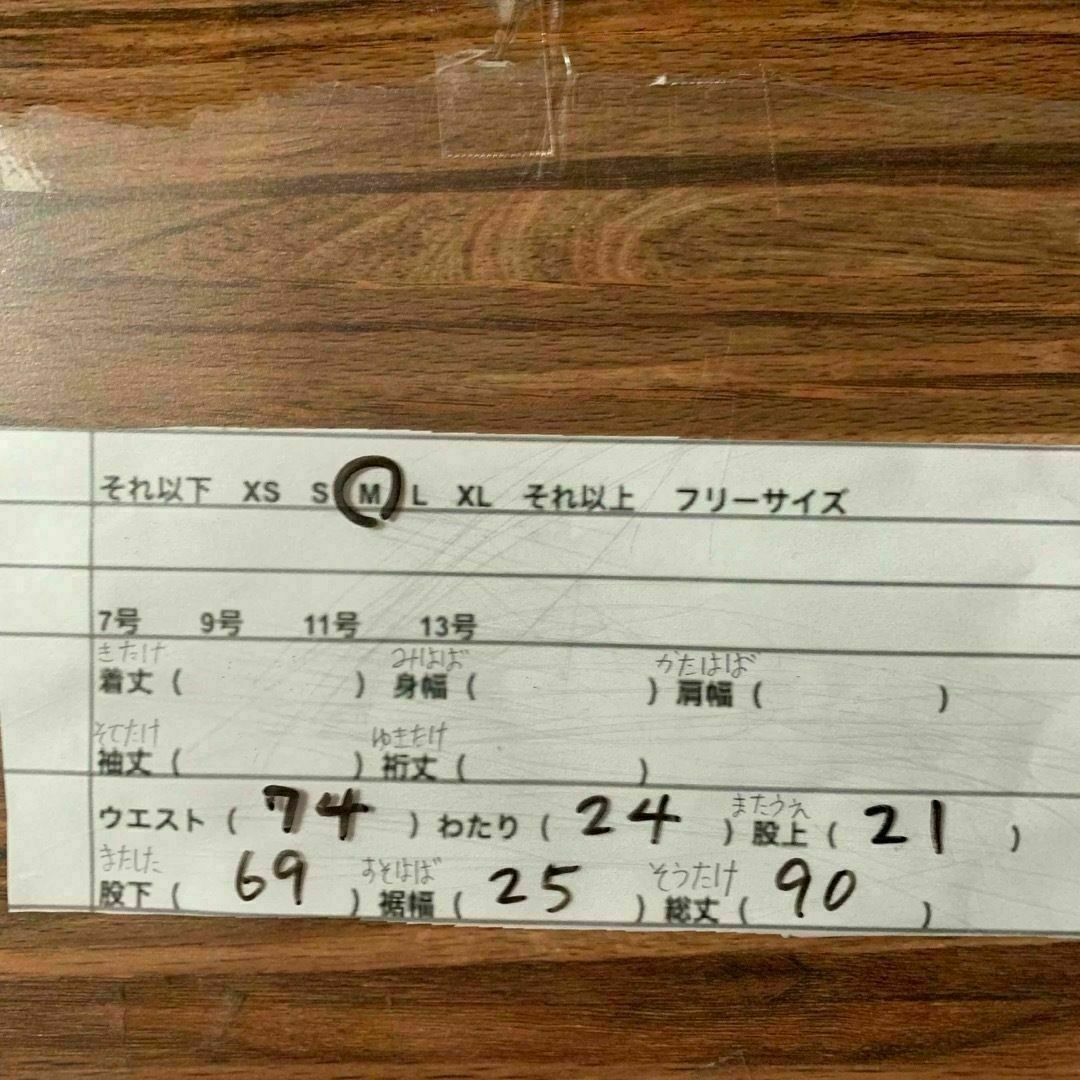 それ以下 XS S M L XL それ以上 フリーサイズ
7号 9号 11号 13号
きたけ みはば かたはば
着丈 ( ) 身幅 ( ) 肩幅 ( )
そでたけ ゆきたけ
袖丈 ( ) 裄丈 ( )
またうえ
ウエスト ( 74 ) わたり ( 24 ) 股上 ( 21 )
またした すそはば そうたけ
股下 ( 69 ) 裾幅 ( 25 ) 総丈 ( 90 )